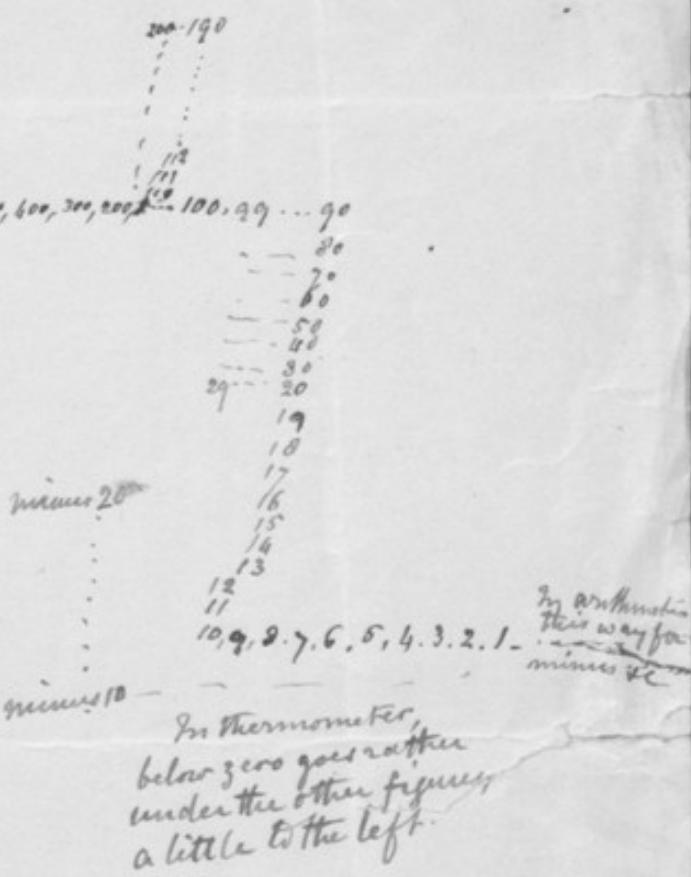 200 190
112
111
110
400, 300, 200, 100, 99 ... 90
80
70
60
50
40
30
29 --- 20
19
18
17
minus 20
16
15
14
13
12
11
10, 9, 8. 7. 6. 5, 4. 3. 2. 1 -
In arithmetic
this way for
minus &c
minus 10
In thermometer,
below zero goes rather
under the other figures,
a little to the left.